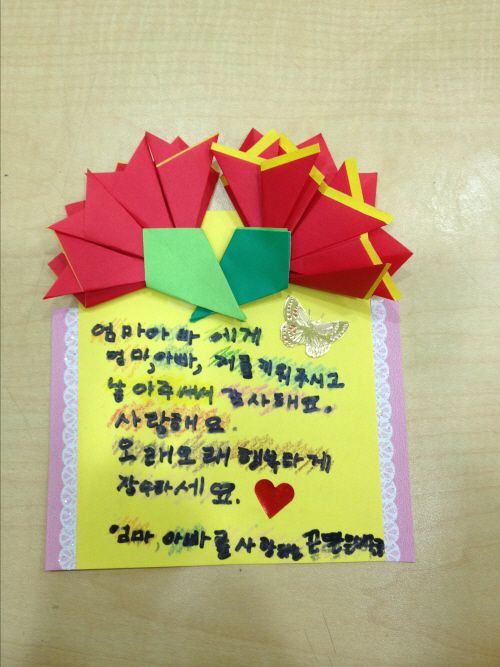 엄마아빠에게
엄마,아빠, 저를키워주시고
낳아주셔서 감사해요.
사랑해요.
오래오래행복하게
장수하세요.
엄마,아빠를사랑하는